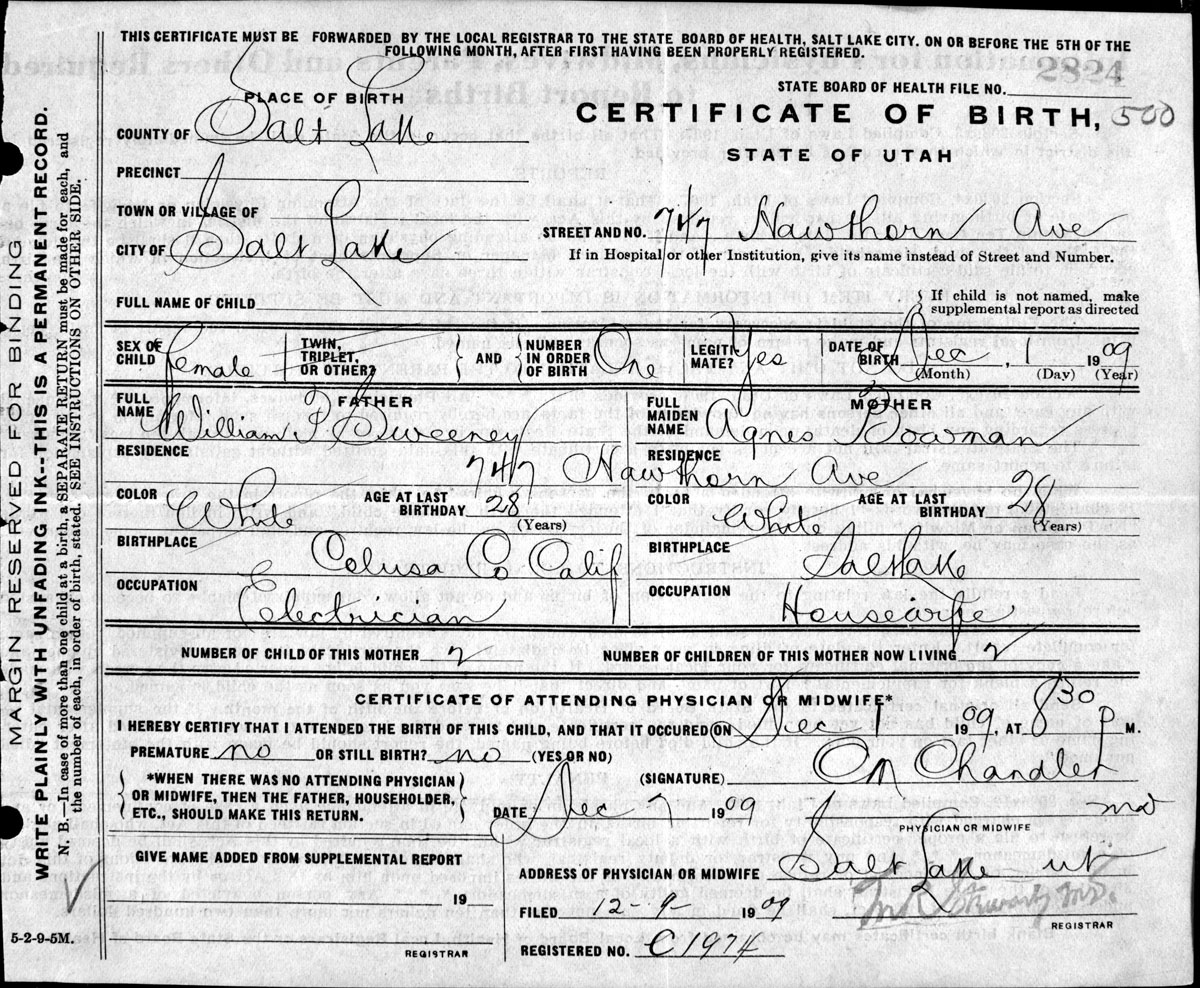 THIS CERTIFICATE MUST BE FORWARDED BY THE LOCAL REGISTRAR TO THE STATE BOARD OF HEALTH, SALT LAKE CITY. ON OR BEFORE THE 5TH OF THE
FOLLOWING MONTH, AFTER FIRST HAVING BEEN PROPERLY REGISTERED.
2824
STATE BOARD OF HEALTH FILE NO.
PLACE OF BIRTH
CERTIFICATE OF BIRTH, 500
STATE OF UTAH
COUNTY OF Salt Lake
PRECINCT
TOWN OR VILLAGE OF
CITY OF Salt Lake
STREET AND NO. 747 Hawthorn Ave
If in Hospital or other Institution, give its name instead of Street and Number.
FULL NAME OF CHILD
{ If child is not named, make
supplemental report as directed
SEX OF CHILD Female
TWIN, TRIPLET, OR OTHER?
} AND { NUMBER IN ORDER OF BIRTH One
LEGITIMATE? Yes
E OF BIRTH Dec 1 1909
(Month) (Day) (Year)
FATHER
FULL NAME William F Sweeney
MOTHER
FULL MAIDEN NAME Agnes Bowman
RESIDENCE 747 Hawthorn Ave
RESIDENCE
COLOR White
AGE AT LAST BIRTHDAY 28
(Years)
COLOR White
AGE AT LAST BIRTHDAY 28
(Years)
BIRTHPLACE Colusa Co Calif
BIRTHPLACE Salt Lake
OCCUPATION Electrician
OCCUPATION Housewife
NUMBER OF CHILD OF THIS MOTHER 2
NUMBER OF CHILDREN OF THIS MOTHER NOW LIVING 2
CERTIFICATE OF ATTENDING PHYSICIAN OR MIDWIFE*
I HEREBY CERTIFY THAT I ATTENDED THE BIRTH OF THIS CHILD, AND THAT IT OCCURED ON Dec 1 1909, AT 830 P M.
PREMATURE no OR STILL BIRTH? no (YES OR NO)
{ *WHEN THERE WAS NO ATTENDING PHYSICIAN
OR MIDWIFE, THEN THE FATHER, HOUSEHOLDER,
ETC., SHOULD MAKE THIS RETURN. }
(SIGNATURE) Chandler
DATE Dec 7 1909
md
PHYSICIAN OR MIDWIFE
GIVE NAME ADDED FROM SUPPLEMENTAL REPORT
19
REGISTRAR
ADDRESS OF PHYSICIAN OR MIDWIFE Salt Lake ut
FILED 12-9 1909
REGISTRAR
REGISTERED NO. C1974
5-2-9-5M.
MARGIN RESERVED FOR BINDING
WRITE PLAINLY WITH UNFADING INK--THIS IS A PERMANENT RECORD.
N. B.--In case of more than one child at a birth, a SEPARATE RETURN must be made for each, and
the number of each, in order of birth, stated. (SEE INSTRUCTIONS ON OTHER SIDE.